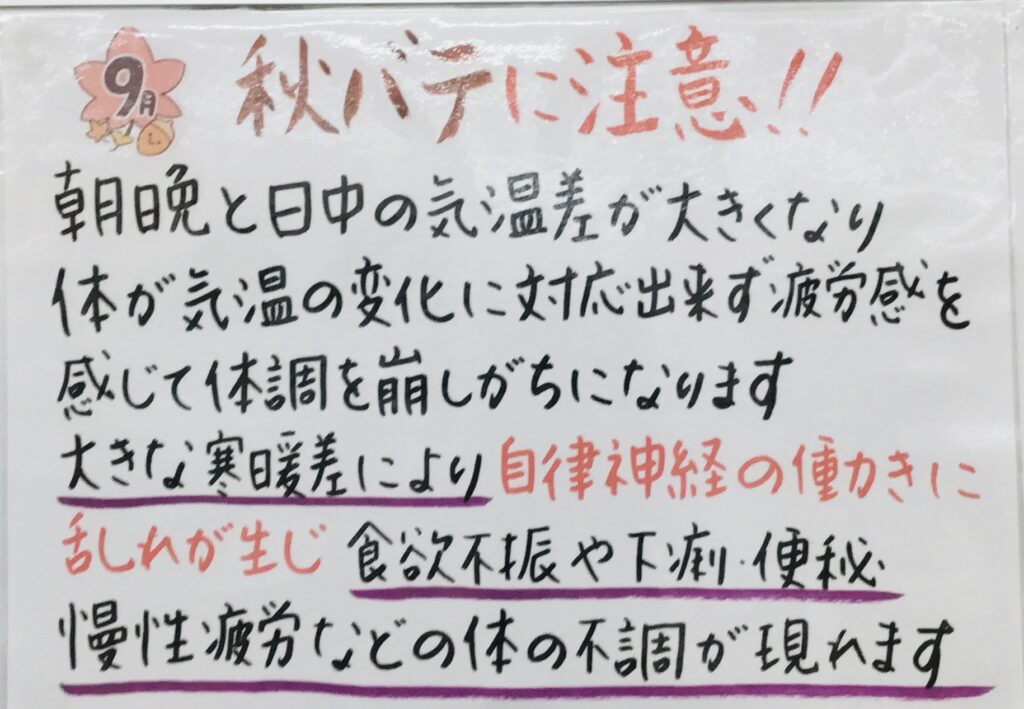 9月
秋バテに注意!!
朝晩と日中の気温差が大きくなり
体が気温の変化に対応出来ず疲労感を
感じて体調を崩しがちになります
大きな寒暖差により自律神経の働きに
乱れが生じ 食欲不振や下痢・便秘
慢性疲労などの体の不調が現れます